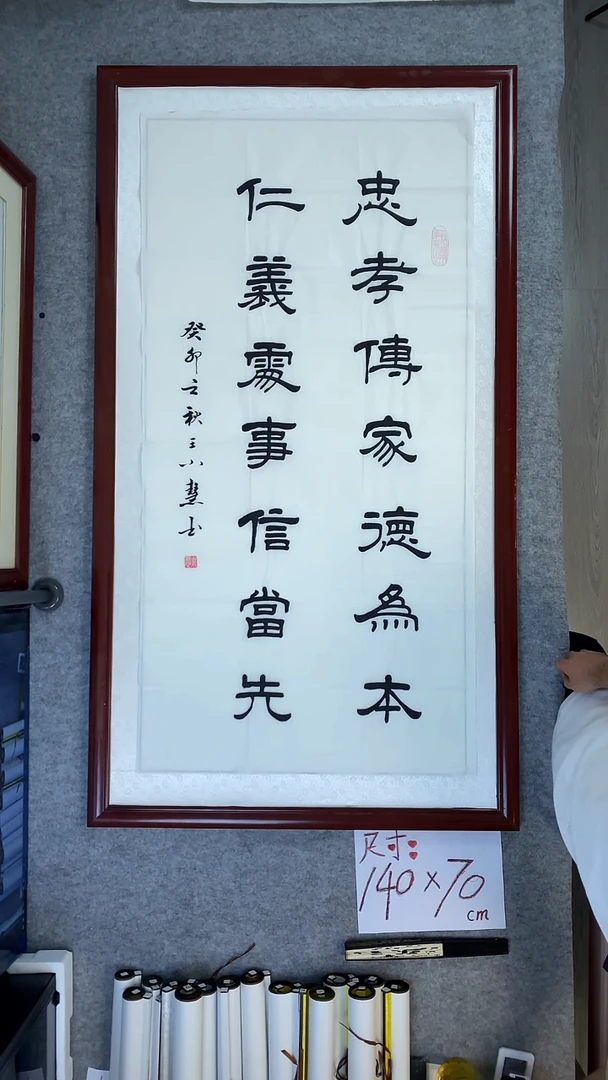 忠孝傳家德為本
仁義處事信當先
癸卯立秋王小慧书
尺寸:
140×70
cm